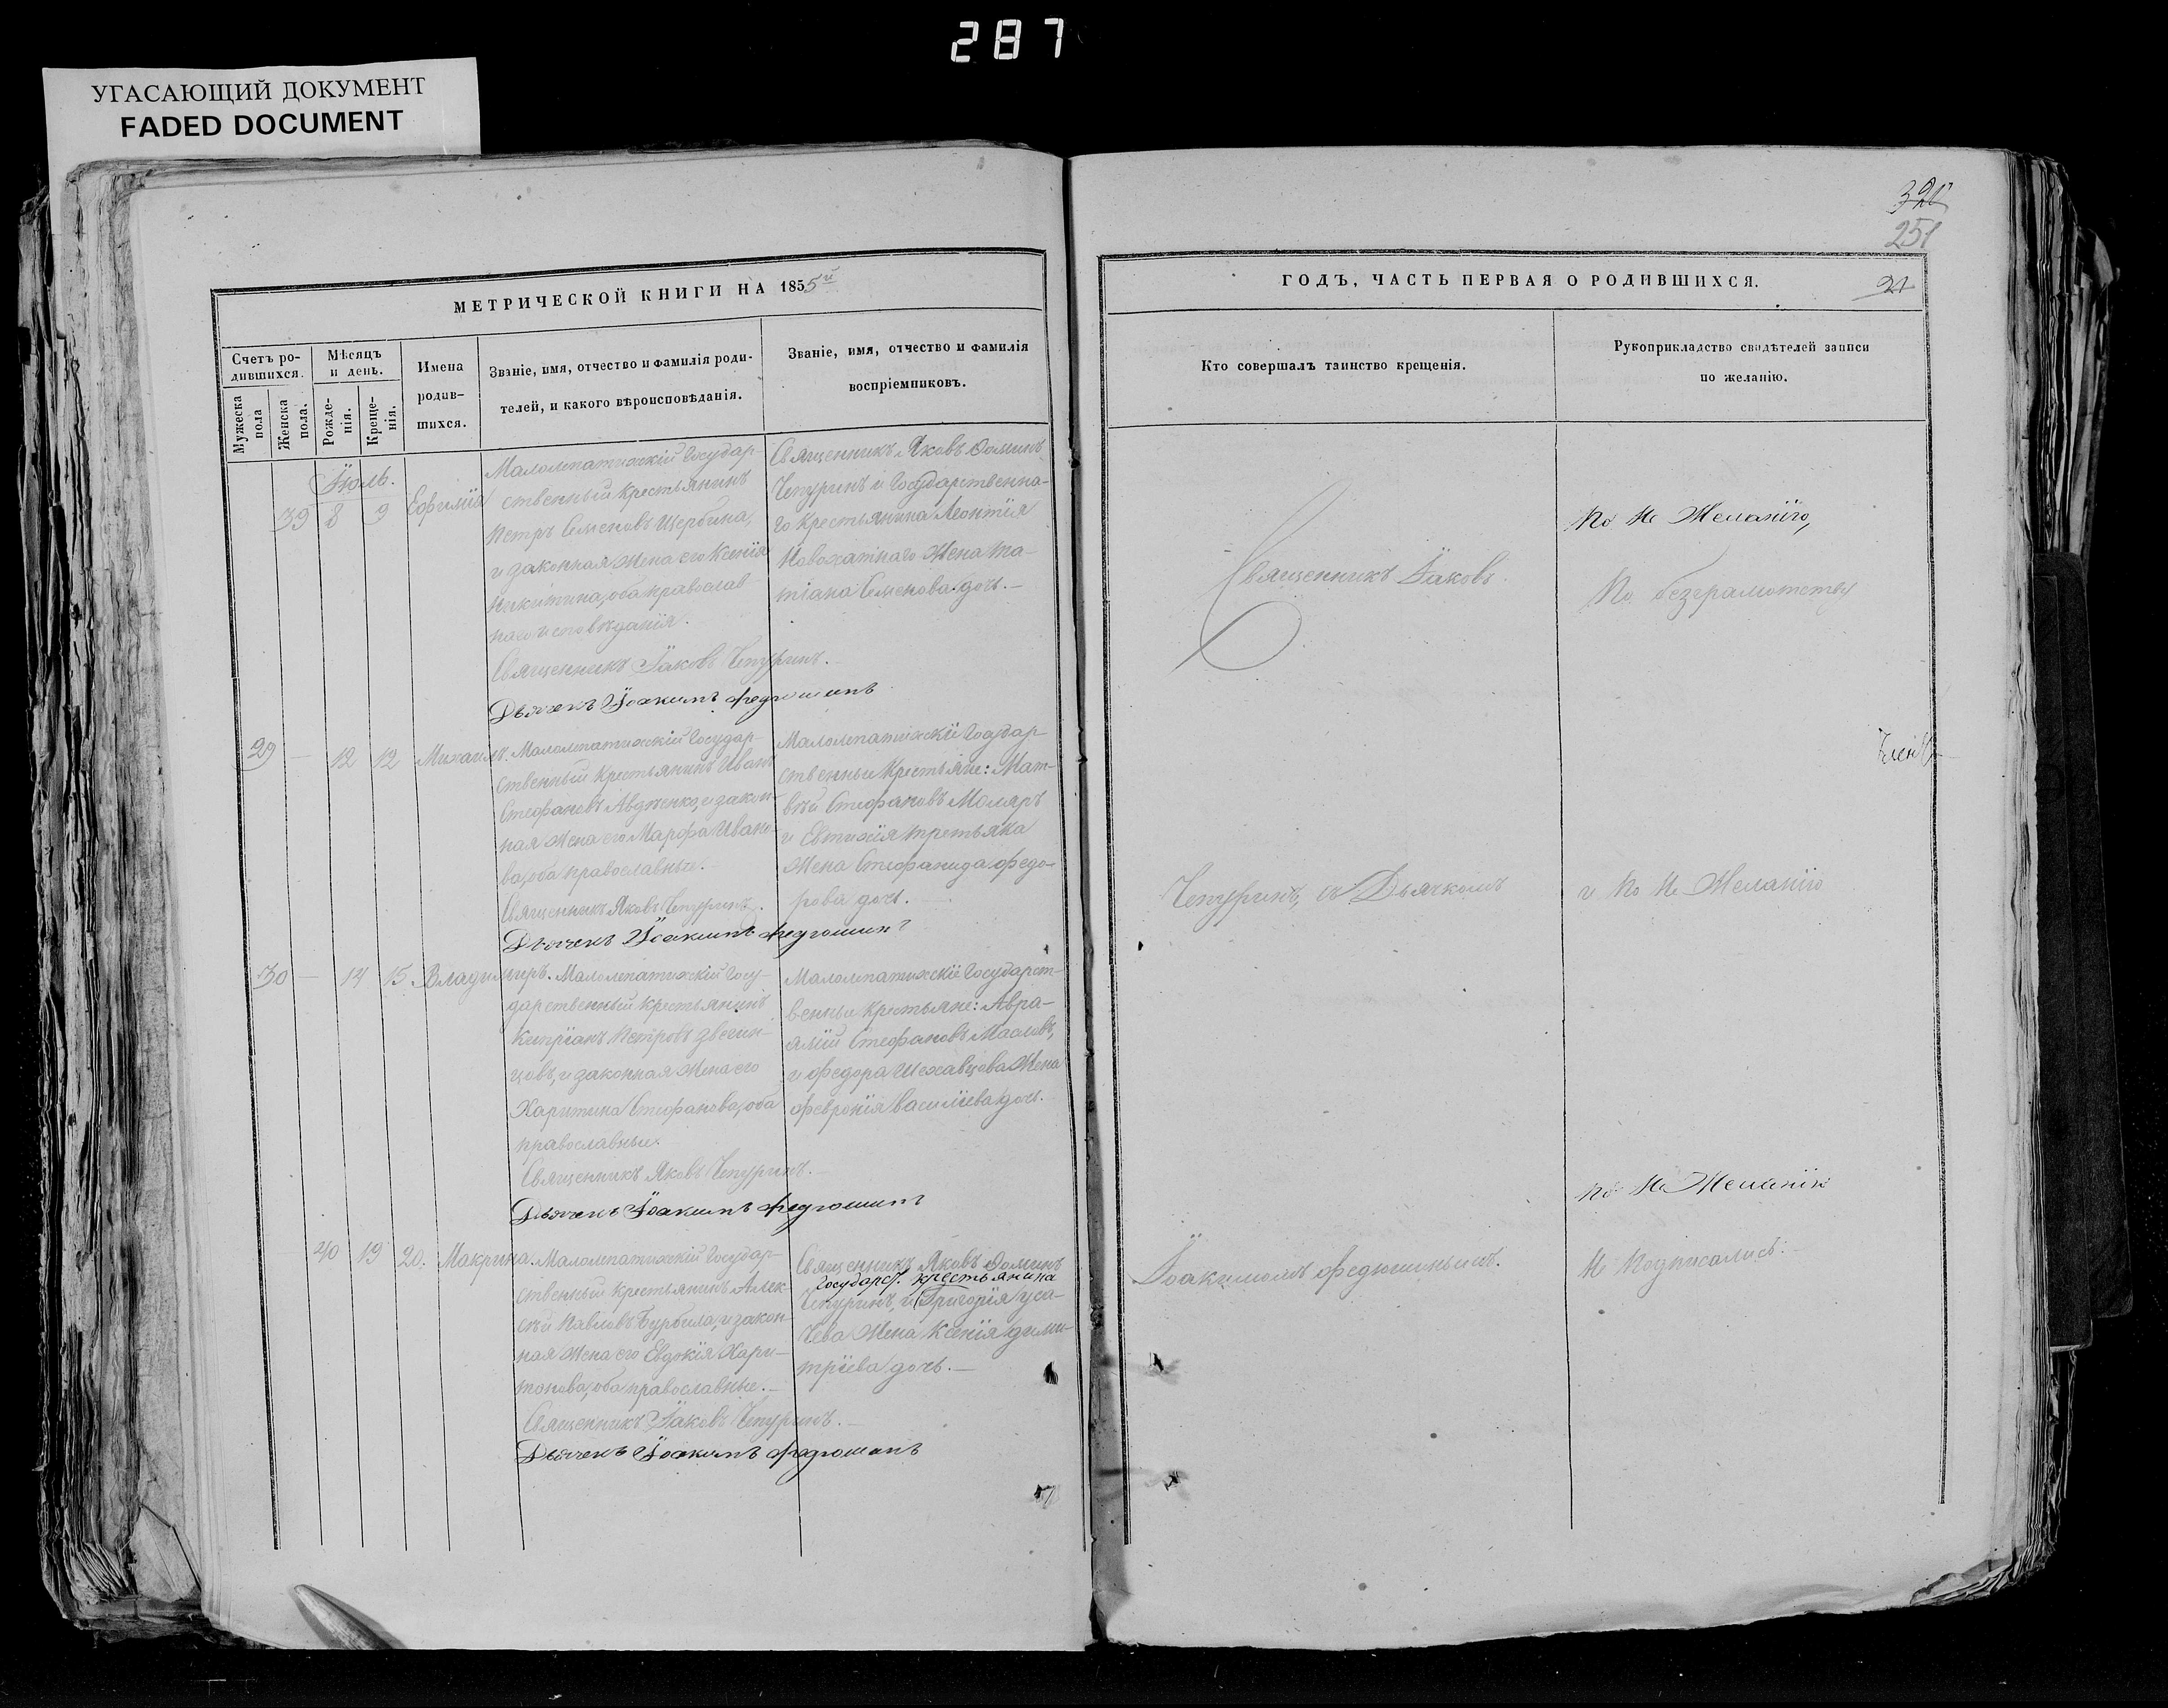 287
УГАСАЮЩИЙ ДОКУМЕНТ
FADED DOCUMENT
МЕТРИЧЕСКОЙ КНИГИ НА 1855й
Счетъ ро-
дившихся.
Мужеска
пола
Женска
пола.
Мѣсяцъ
и день.
Рожде-
нія.
Креще-
нія.
Имена
родив-
шихся.
Званіе, имя, отчество и фамилія роди-
телей, и какого вѣроисповѣданія.
Званіе, имя, отчество и фамилія
воспріемниковъ.
Іюль.
39 8 9 Евфимія
Государ-
ственный крестьянинъ
Петръ Семеновъ Щербина,
и законная жена его Ксенія
Никитина, оба православ-
наго исповѣданія.
Священникъ Іаковъ Чепуринъ.
Дьячекъ Іоакимъ Федюшинъ
Священникъ Яковъ Фоминъ
Чепуринъ и Государственна-
го крестьянина Леонтія
Новохатнаго жена Та-
тіана Семенова дочь.—
29 — 12 12 Михаилъ.
Государ-
ственный крестьянинъ Иванъ
Стефановъ Авдѣенко, и закон-
ная жена его Марфа Ивано-
ва, оба православные.
Священникъ Яковъ Чепуринъ.
Дьячекъ Іоакимъ Федюшинъ
Государ-
ственные крестьяне: Мат-
вѣй Стефановъ Моляръ
и Евтихія Третьяка
жена Стефанида Федо-
рова дочь.
30 — 14 15. Владимиръ.
Госу-
дарственный крестьянинъ
Кипріанъ Петровъ
и законная жена его
Харитина Стефанова, оба
православные.
Священникъ Яковъ Чепуринъ.
Дьячекъ Іоакимъ Федюшинъ
Государст-
венные крестьяне: Авра-
амій Стефановъ Масловъ,
и Федора жена
Февронія Васильева дочь.
40 19 20. Макрина.
Государ-
ственный крестьянинъ Алек-
сѣй Павловъ и закон-
ная жена его Евдокія Хари-
тонова, оба православные.—
Священникъ Іаковъ Чепуринъ.—
Дьячекъ Іоакимъ Федюшинъ
Священникъ Яковъ Фоминъ
Государст. крестьянина
Чепуринъ, и Григорія Уса-
чева жена Ксенія Дими-
тріева дочь.—
251
21
ГОДЪ, ЧАСТЬ ПЕРВАЯ О РОДИВШИХСЯ.
Кто совершалъ таинство крещенія.
Рукоприкладство свидѣтелей записи
по желанію.
Священникъ Іаковъ
Чепуринъ, съ Дьячкомъ
Іоакимомъ Федюшинымъ.
По не желанію,
По безграмотству
и по не желанію
по не желанію
не подписались.—